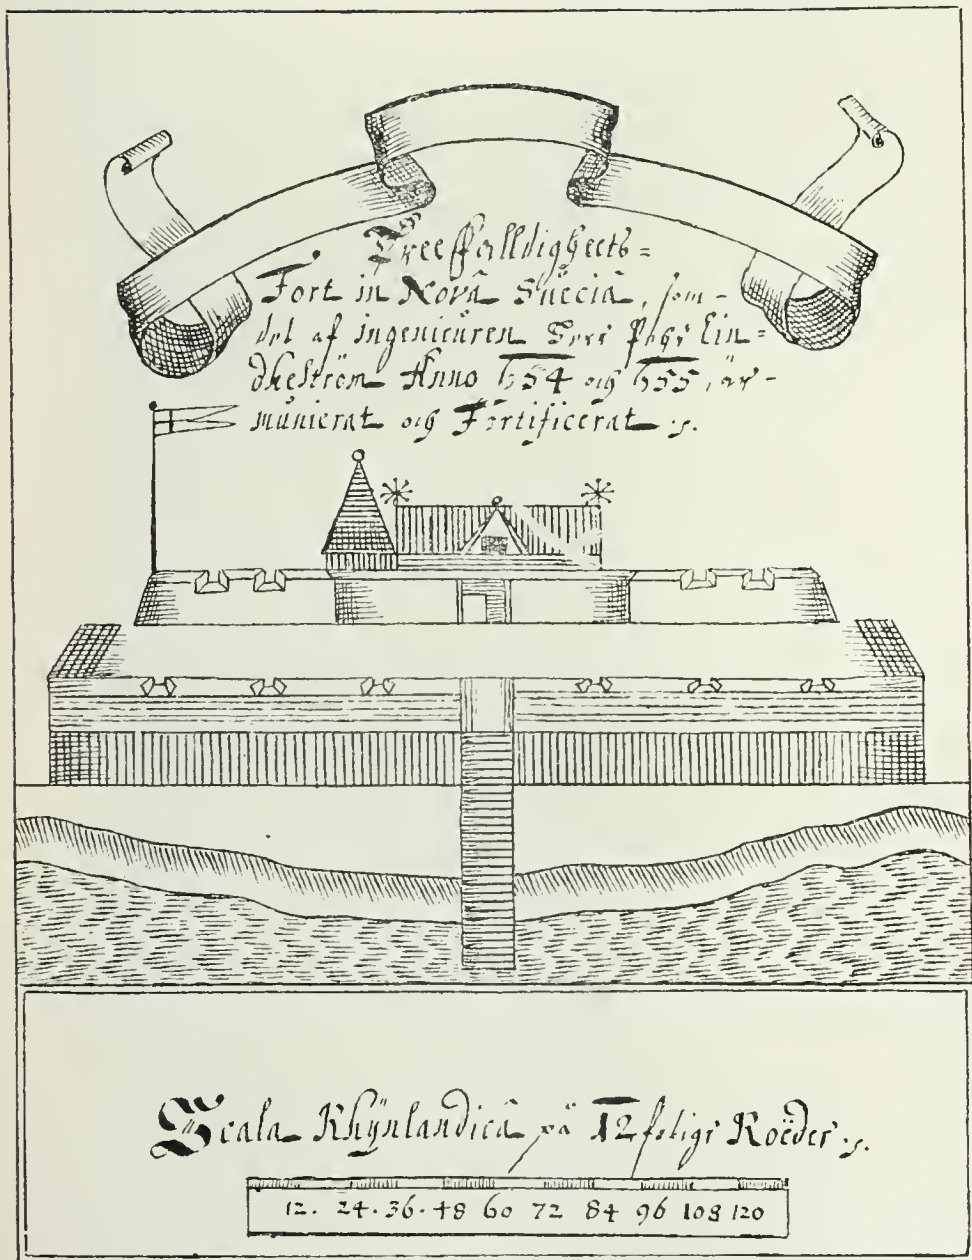 Treefalldigheets=
Fort in Novâ Suëciâ, som-
det af ingenieuren Peer
Anno 1654 och 1655, är-
munierat och Fortificerat :s.
Scala Rhÿnlandicâ på 12 fotige Roëder :s.
12. 24. 36. 48 60 72 84 96 108 120